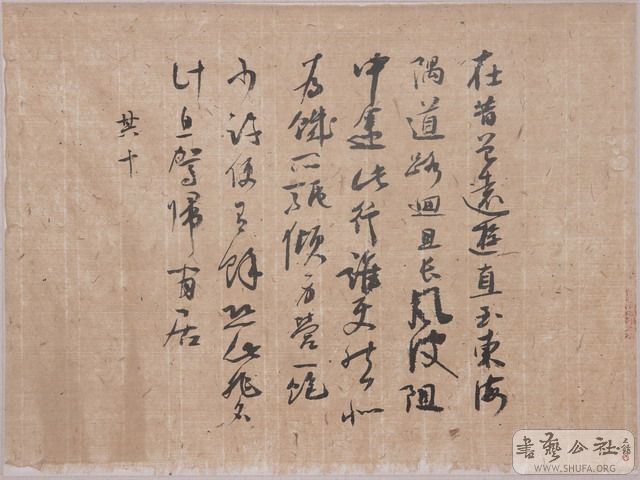 在昔曾遠遊直至東海
隅道路迴且長風波阻
中途此行誰使然似
為饑所驅傾身營一飽
少許便有餘恐此非名
計息駕歸閒居
其十
書藝公社
WWW.SHUFA.ORG